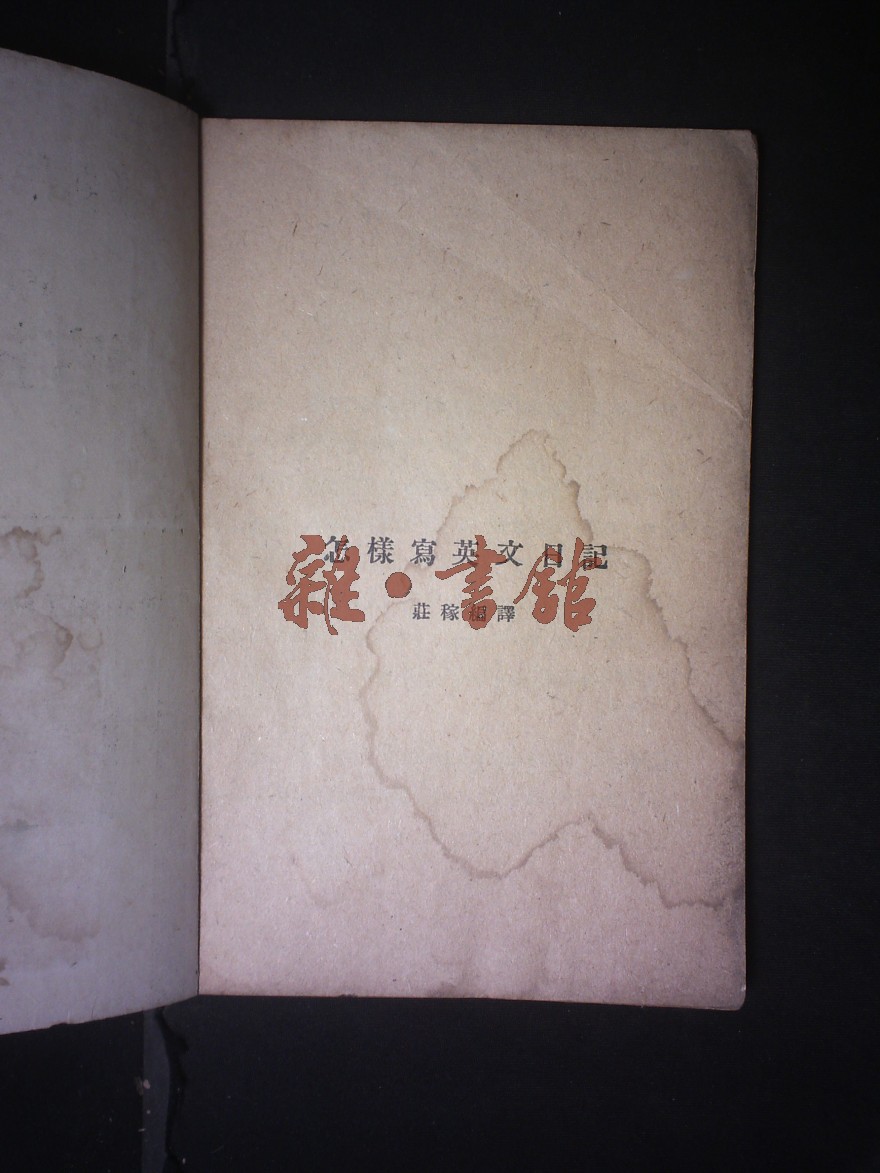 怎樣寫英文日記
雜·書館
莊稼編譯